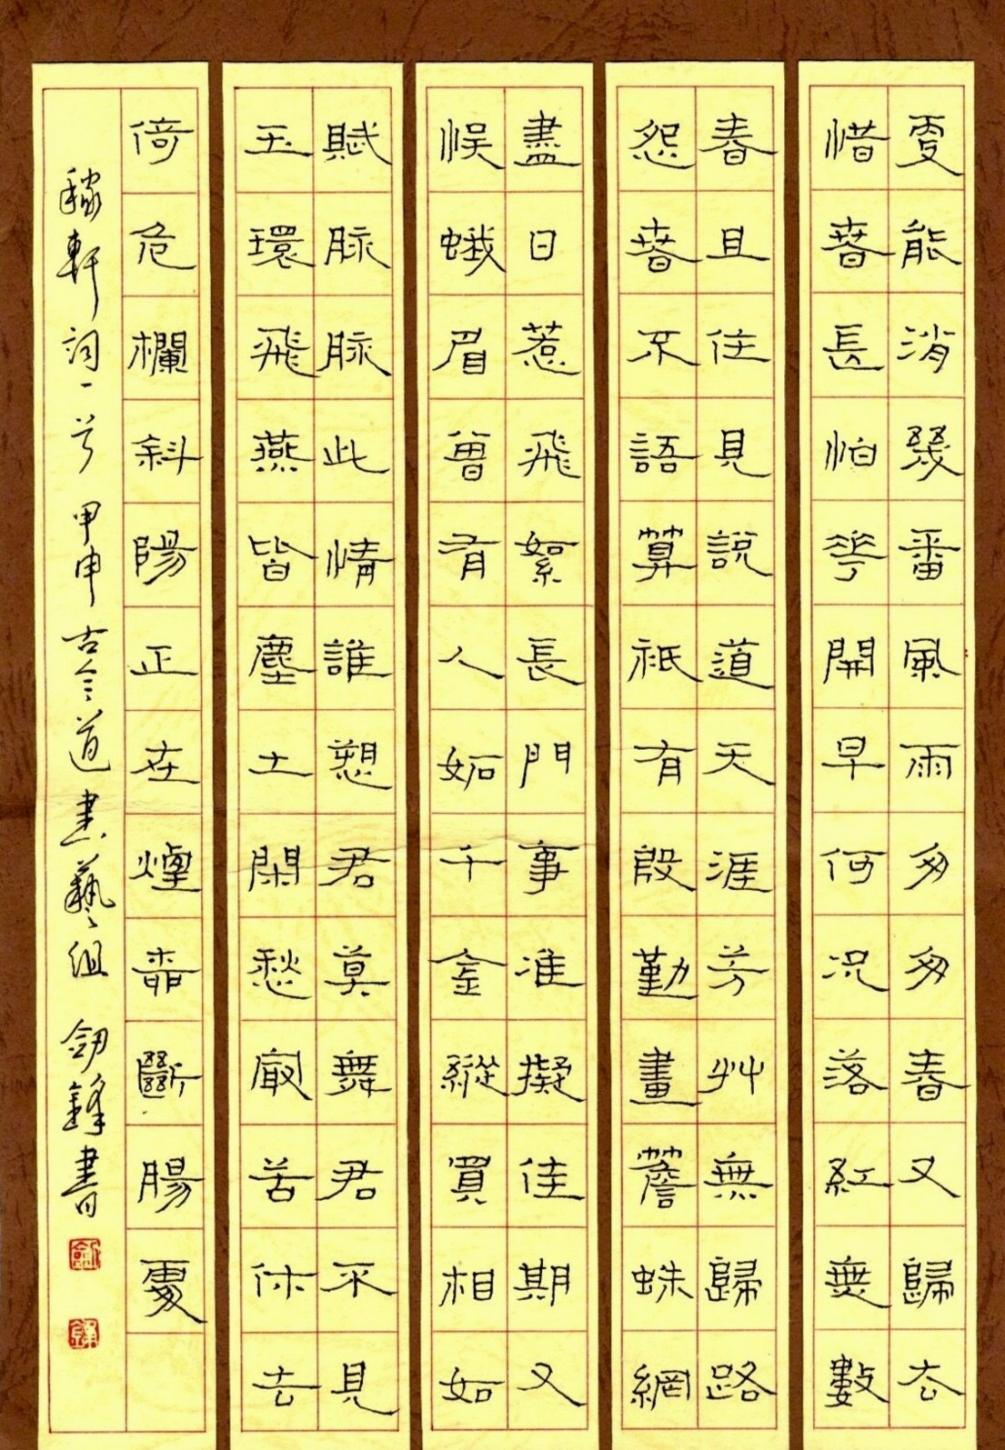 更能消幾番風雨匆匆春又歸去
惜春長怕花開早何況落紅無數
春且住見說道天涯芳艸無歸路
怨春不語算祇有殷勤畫簷蛛網
盡日惹飛絮長門事准擬佳期又
悞蛾眉曾有人妬千金縱買相如
賦脉脉此情誰愬君莫舞君不見
玉環飛燕皆塵土閑愁最苦休去
倚危欄斜陽正在煙柳斷腸處
稼軒詞一首 甲申古今道書藝組 劍鋒書
劍
鋒